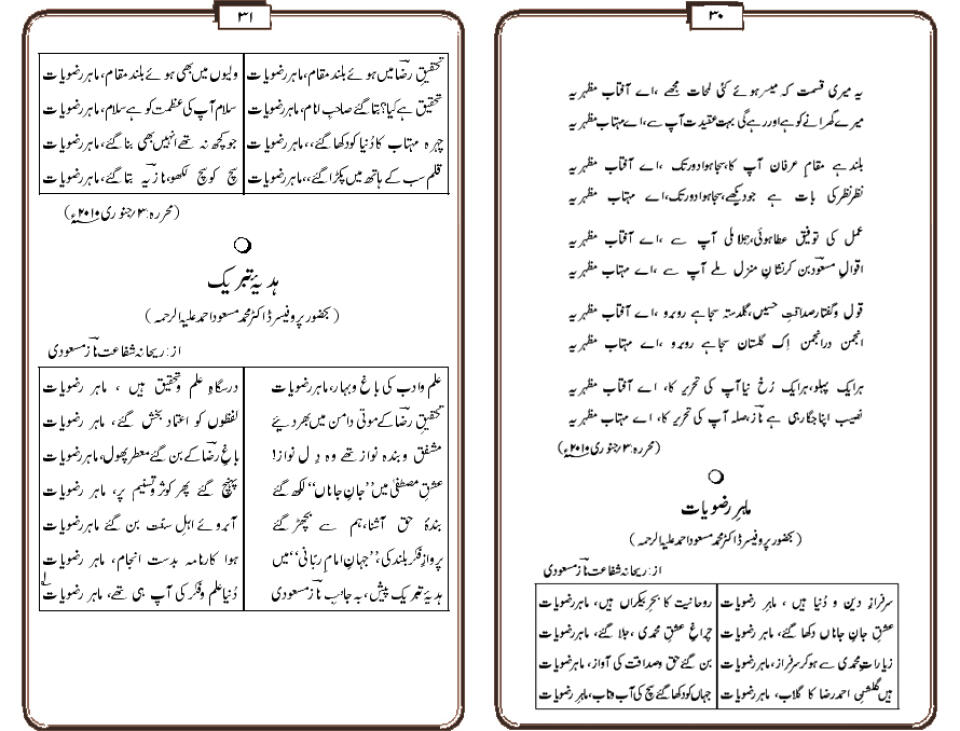 ۳۰
یہ میری قسمت کہ میسر ہوئے کئی لمحات مجھے ،اے آفتاب مظہریہ
میرے گھرانے کو ہے اور رہے گی بہت عقیدت آپ سے،اے مہتاب مظہریہ
بلند ہے مقام عرفان آپ کا،سجا ہوا دور تک ،اے آفتاب مظہریہ
نظر نظر کی بات ہے جو دیکھے،سجا ہوا دور تک،اے مہتاب مظہریہ
عمل کی توفیق عطا ہوئی،جلا ملی آپ سے ،اے آفتاب مظہریہ
اقوالِ مسعودؔ بن کر نشانِ منزل ملے آپ سے ،اے مہتاب مظہریہ
قول و گفتار صداقتِ حسیں،گلدستہ سجا ہے روبرو ،اے آفتاب مظہریہ
انجمن در انجمن اِک گلستان سجا ہے روبرو ،اے مہتاب مظہریہ
ہر ایک پہلو،ہر ایک رُخ نیا آپ کی تحریر کا، اے آفتاب مظہریہ
نصیب اپنا جگا رہی ہے نازؔ،صلہ آپ کی تحریر کا، اے مہتاب مظہریہ
(محررہ:۳؍جنوری ۲۰۱۰ء)
ماہرِ رضویات
(بحضور پروفیسر ڈاکٹر محمد مسعود احمد علیہ الرحمہ)
از: ریحانہ شفاعت نازؔ مسعودی
سرفرازِ دین و دُنیا ہیں ، ماہر رضویات روحانیت کا بحرِ بیکراں ہیں، ماہر رضویات
عشقِ جانِ جاناں دکھا گئے، ماہر رضویات چراغِ عشقِ محمدی ،جلا گئے، ماہر رضویات
زیارتِ محمدی سے ہو کر سرفراز، ماہر رضویات بن گئے حق و صداقت کی آواز، ماہر رضویات
ہیں گلشنِ احمد رضا کا گلاب، ماہر رضویات جہاں کو دکھا گئے سچ کی آب و تاب، ماہر رضویات
۳۱
تحقیقِ رضاؔ میں ہوئے بلند مقام، ماہر رضویات ولیوں میں بھی ہوئے بلند مقام، ماہر رضویات
تحقیق ہے کیا؟ بتا گئے صاحبِ امام، ماہر رضویات سلام آپ کی عظمت کو ہے سلام، ماہر رضویات
چہرہ مہتاب کا دُنیا کو دکھا گئے،، ماہر رضویات جو کچھ نہ تھے انہیں بھی بنا گئے، ماہر رضویات
قلم سب کے ہاتھ میں پکڑا گئے،، ماہر رضویات سچ کو سچ لکھو، نازؔ یہ بتا گئے، ماہر رضویات
(محررہ:۳؍جنوری ۲۰۱۰ء)
ہدیۂ تبریک
(بحضور پروفیسر ڈاکٹر محمد مسعود احمد علیہ الرحمہ)
از: ریحانہ شفاعت نازؔ مسعودی
علم و ادب کی باغ و بہار، ماہر رضویات درسگاہِ علم و تحقیق ہیں ، ماہر رضویات
تحقیقِ رضاؔ کے موتی دامن میں بھر دیئے لفظوں کو اعتماد بخش گئے، ماہر رضویات
مشفق و بندہ نواز تھے وہ دِل نواز! باغِ رضاؔ کے بن گئے معطر پھول، ماہر رضویات
عشقِ مصطفیٰ میں ”جانِ جاناں“ لکھ گئے پہنچ گئے پھر کوثر و تسنیم پر، ماہر رضویات
بندۂ حق آشنا، ہم سے بچھڑ گئے آبروئے اہلِ سنّت بن گئے ماہر رضویات
پروازِ فکر بلند کی، ”جہانِ امامِ ربّانی“ میں ہوا کارنامہ بدست انجام، ماہر رضویات
ہدیۂ تبریک پیش، بہ جانبِ نازؔ مسعودی دُنیا علم و فکر کی آپ ہی تھے، ماہر رضویات